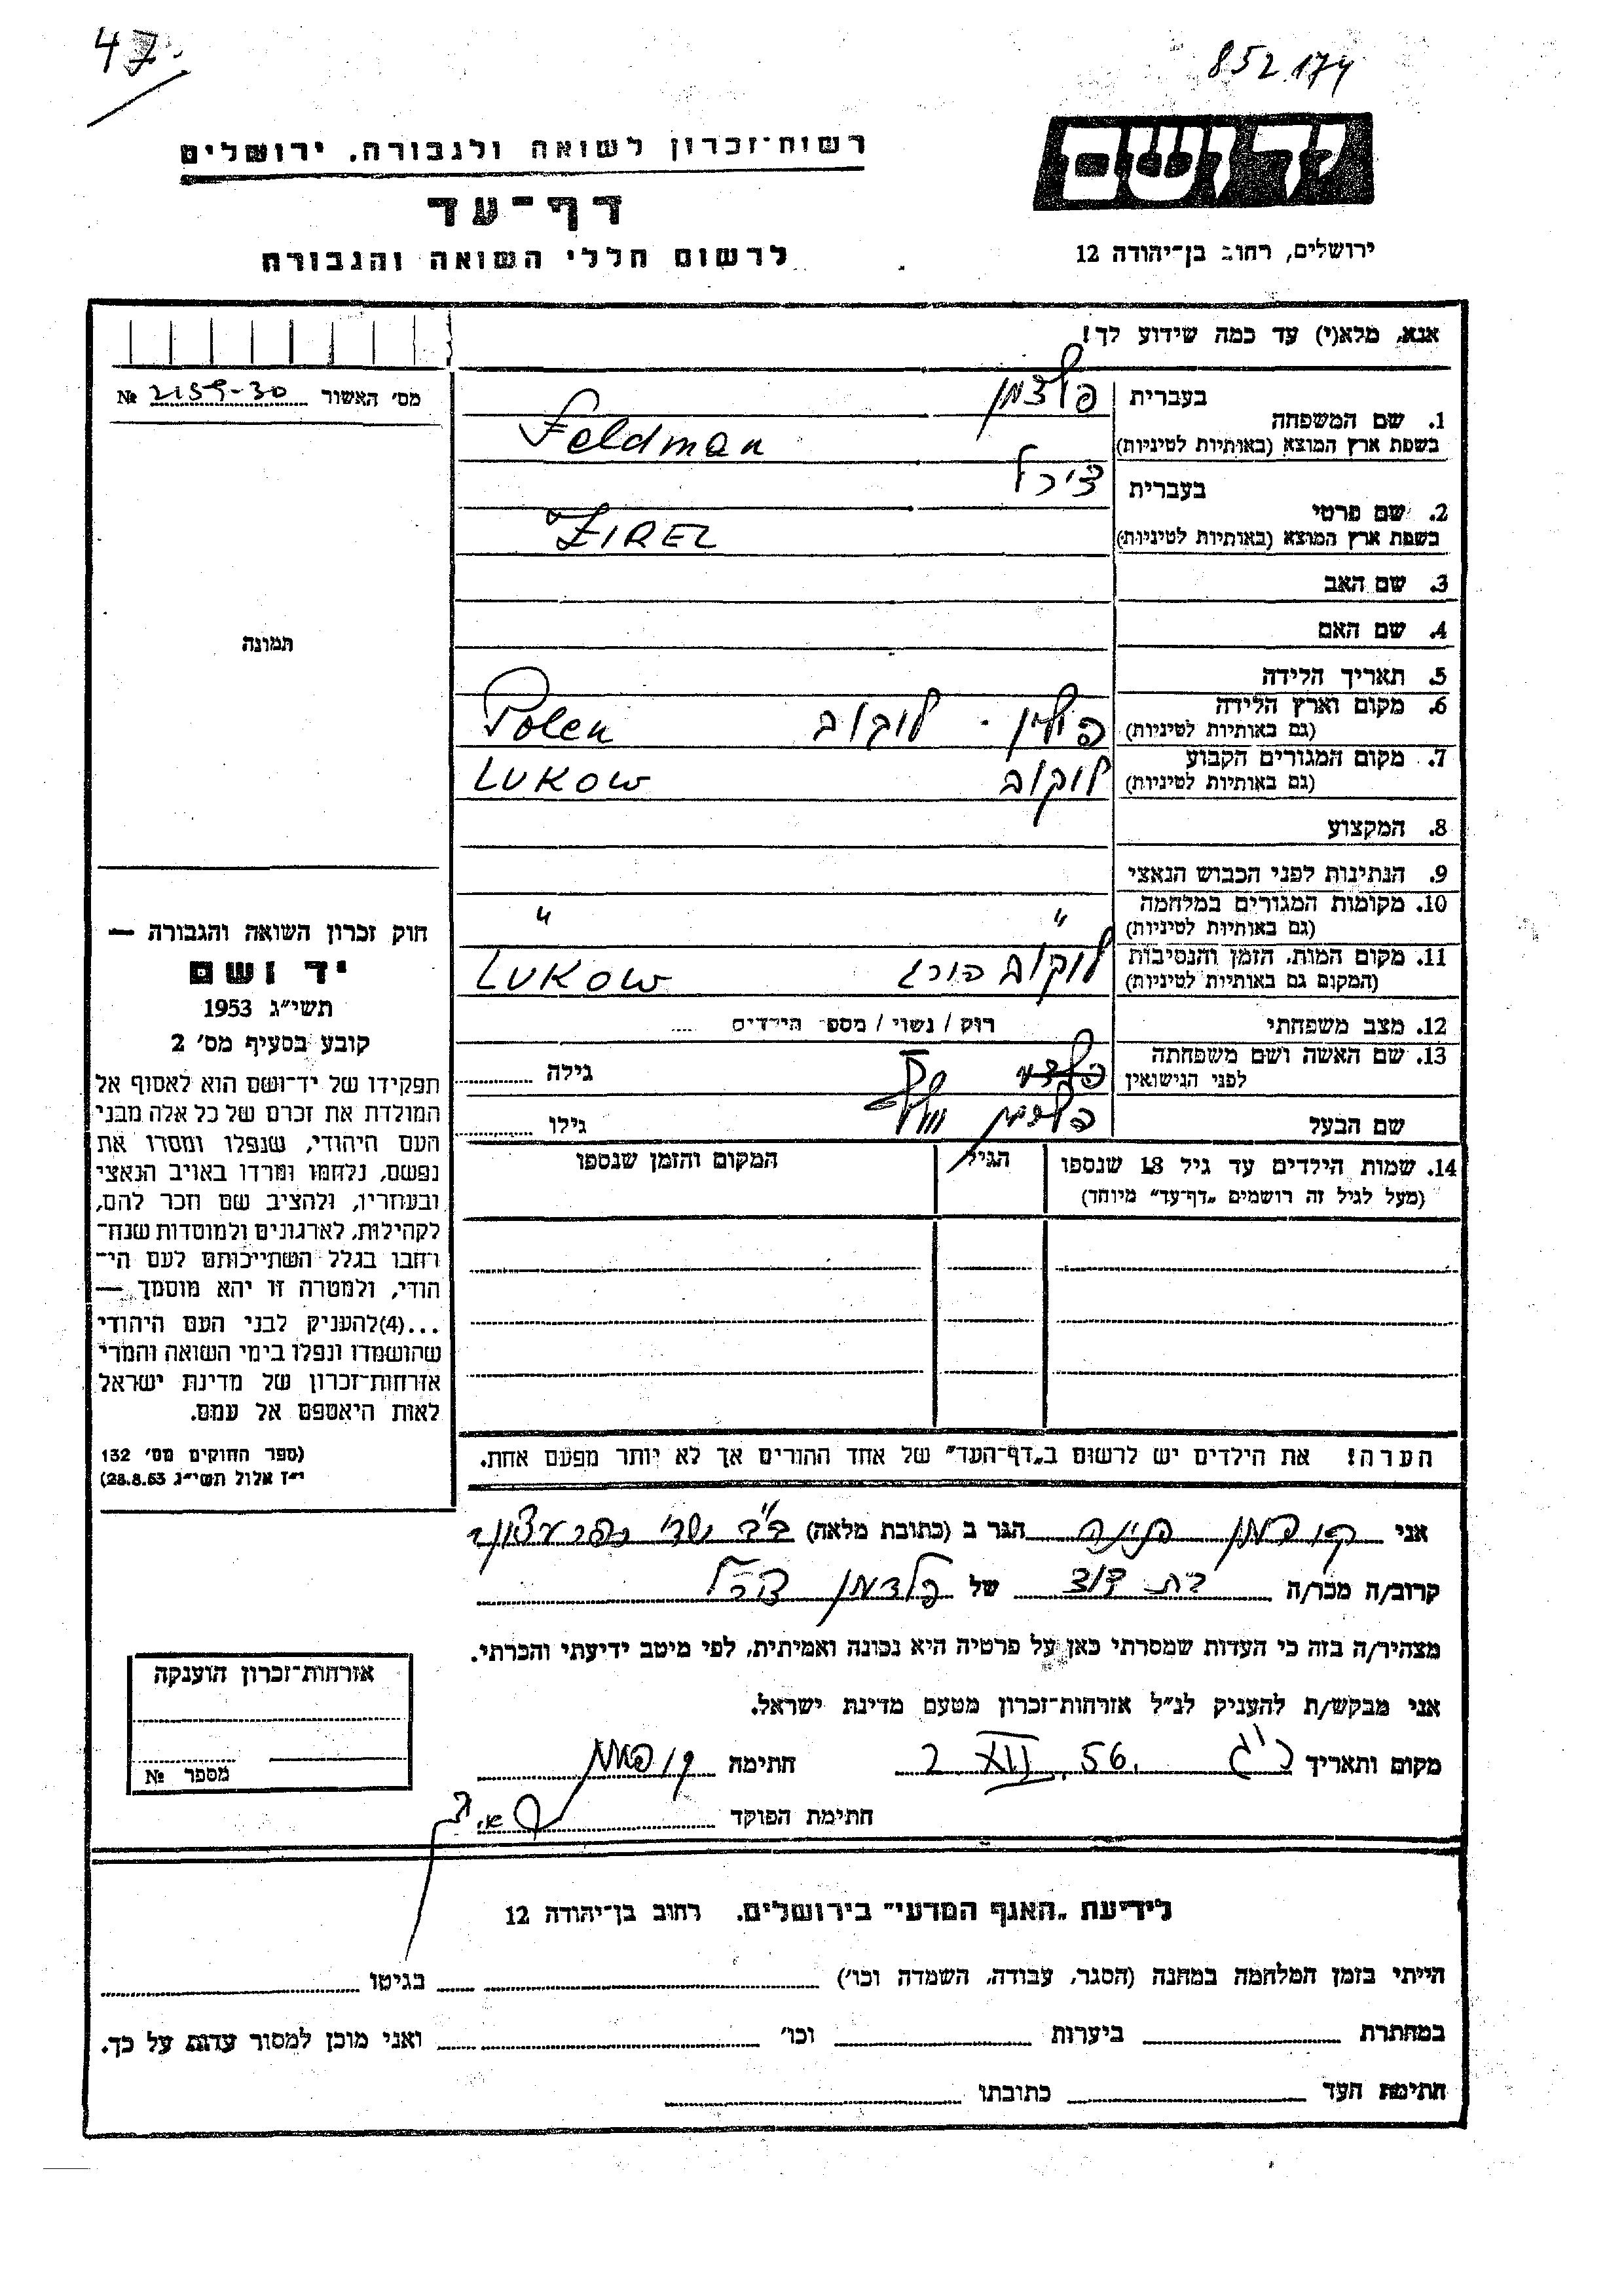 47.
852.174
רשות־זכרון לשואה ולגבורה. ירושלים
יד ושם
דף־עד
לרשום חללי השואה והגבורה
ירושלים, רחוב בן־יהודה 12
אנא, מלא(י) עד כמה שידוע לך!
מס׳ האשור № 2159-30
1. שם המשפחה
בעברית פלדמן
בשפת ארץ המוצא (באותיות לטיניות) Feldman
2. שם פרטי
בעברית צירל
בשפת ארץ המוצא (באותיות לטיניות) ZIREL
3. שם האב
4. שם האם
תמונה
5. תאריך הלידה
6. מקום וארץ הלידה פולין - לוקוב Polen
(גם באותיות לטיניות)
7. מקום המגורים הקבוע לוקוב LUKOW
(גם באותיות לטיניות)
8. המקצוע
9. הנתינות לפני הכבוש הנאצי
10. מקומות המגורים במלחמה " "
(גם באותיות לטיניות)
11. מקום המות, הזמן והנסיבות לוקוב הורג LUKOW
(המקום גם באותיות לטיניות)
12. מצב משפחתי רוק / נשוי / מספר הילדים ....
13. שם האשה ושם משפחתה
לפני הנישואין גילה
שם הבעל פלדמן גילו
14. שמות הילדים עד גיל 18 שנספו הגיל המקום והזמן שנספו
(מעל לגיל זה רושמים „דף־עד" מיוחד)
חוק זכרון השואה והגבורה —
יד ושם
תשי״ג 1953
קובע בסעיף מס׳ 2
תפקידו של יד־ושם הוא לאסוף אל
המולדת את זכרם של כל אלה מבני
העם היהודי, שנפלו ומסרו את
נפשם, נלחמו ומרדו באויב הנאצי
ובעוזריו, ולהציב שם וזכר להם,
לקהילות, לארגונים ולמוסדות שנח־
רבו בגלל השתייכותם לעם הי־
הודי, ולמטרה זו יהא מוסמך —
...(4)להעניק לבני העם היהודי
שהושמדו ונפלו בימי השואה והמרי
אזרחות־זכרון של מדינת ישראל
לאות היאספם אל עמם.
(ספר החוקים מס׳ 132
י״ז אלול תשי״ג 28.8.53)
הערה! את הילדים יש לרשום ב„דף־העד" של אחד ההורים אך לא יותר מפעם אחת.
אני קופמן הגר ב (כתובת מלאה)
קרוב/ה מכר/ה בת דוד של פלדמן צירל
מצהיר/ה בזה כי העדות שמסרתי כאן על פרטיה היא נכונה ואמיתית, לפי מיטב ידיעתי והכרתי.
אני מבקש/ת להעניק לנ״ל אזרחות־זכרון מטעם מדינת ישראל.
מקום ותאריך 2 XII. 56. חתימה
חתימת הפוקד
אזרחות־זכרון הוענקה
מספר №
לידיעת „האגף המדעי" בירושלים. רחוב בן־יהודה 12
הייתי בזמן המלחמה במחנה (הסגר, עבודה, השמדה וכו׳) בגיטו
במחתרת ביערות וכו׳ ואני מוכן למסור עדות על כך.
חתימת העד כתובתו